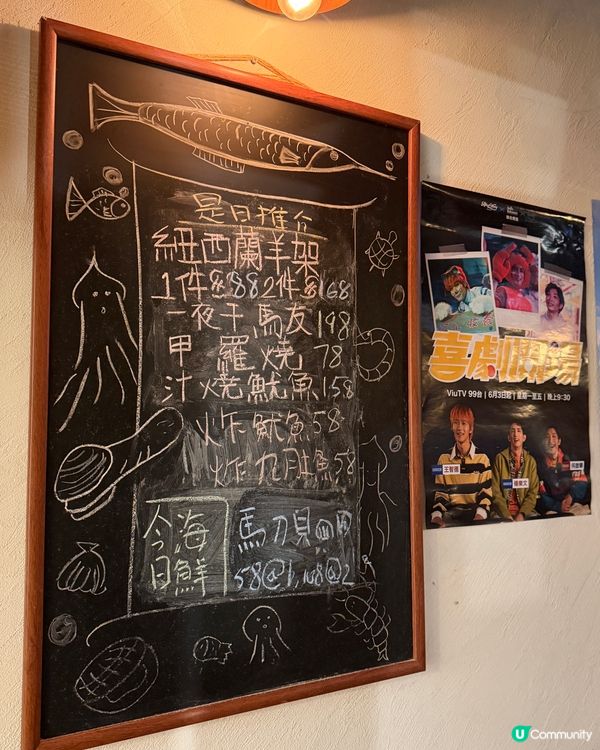 是日推介
紐西蘭羊架
1件$88 2件$168
一夜干馬友 198
甲羅燒 78
汁燒魷魚 158
炸魷魚 58
炸九肚魚 58
今日
海鮮
馬刀貝
58@1, 108@2
喜劇開場
ViuTV 99台 | 6月3日起 | 星期一至五 | 晚上9:30
王智德
楊樂文
U Community